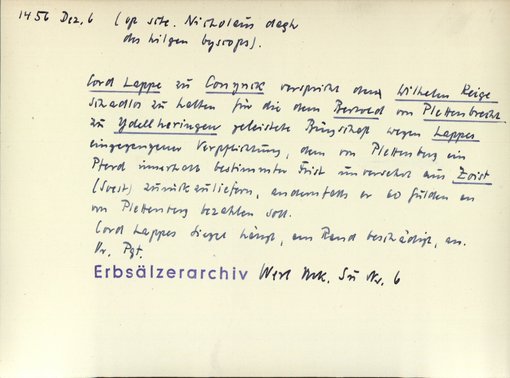 1456 Dez. 6 (op site. Nicholaus dagh
des hilgen byscops).
Cord Lappe zu Conynck verspricht dem Wilhelm Reige
schadlos zu halten für die dem Bertold von Plettenbrecht
zu Ydellheringen geleistete Bürgschaft wegen Lappes
eingegangener Verpflichtung, dem von Plettenberg ein
Pferd innerhalb bestimmter Frist unversehrt aus Zoist
(Soest) zurückzuliefern, andernfalls er 60 Gulden an
von Plettenberg bezahlen soll.
Cord Lappes Siegel hängt, am Rand beschädigt, an.
Or. Pgt.
Erbsälzerarchiv Werl Nr. 6